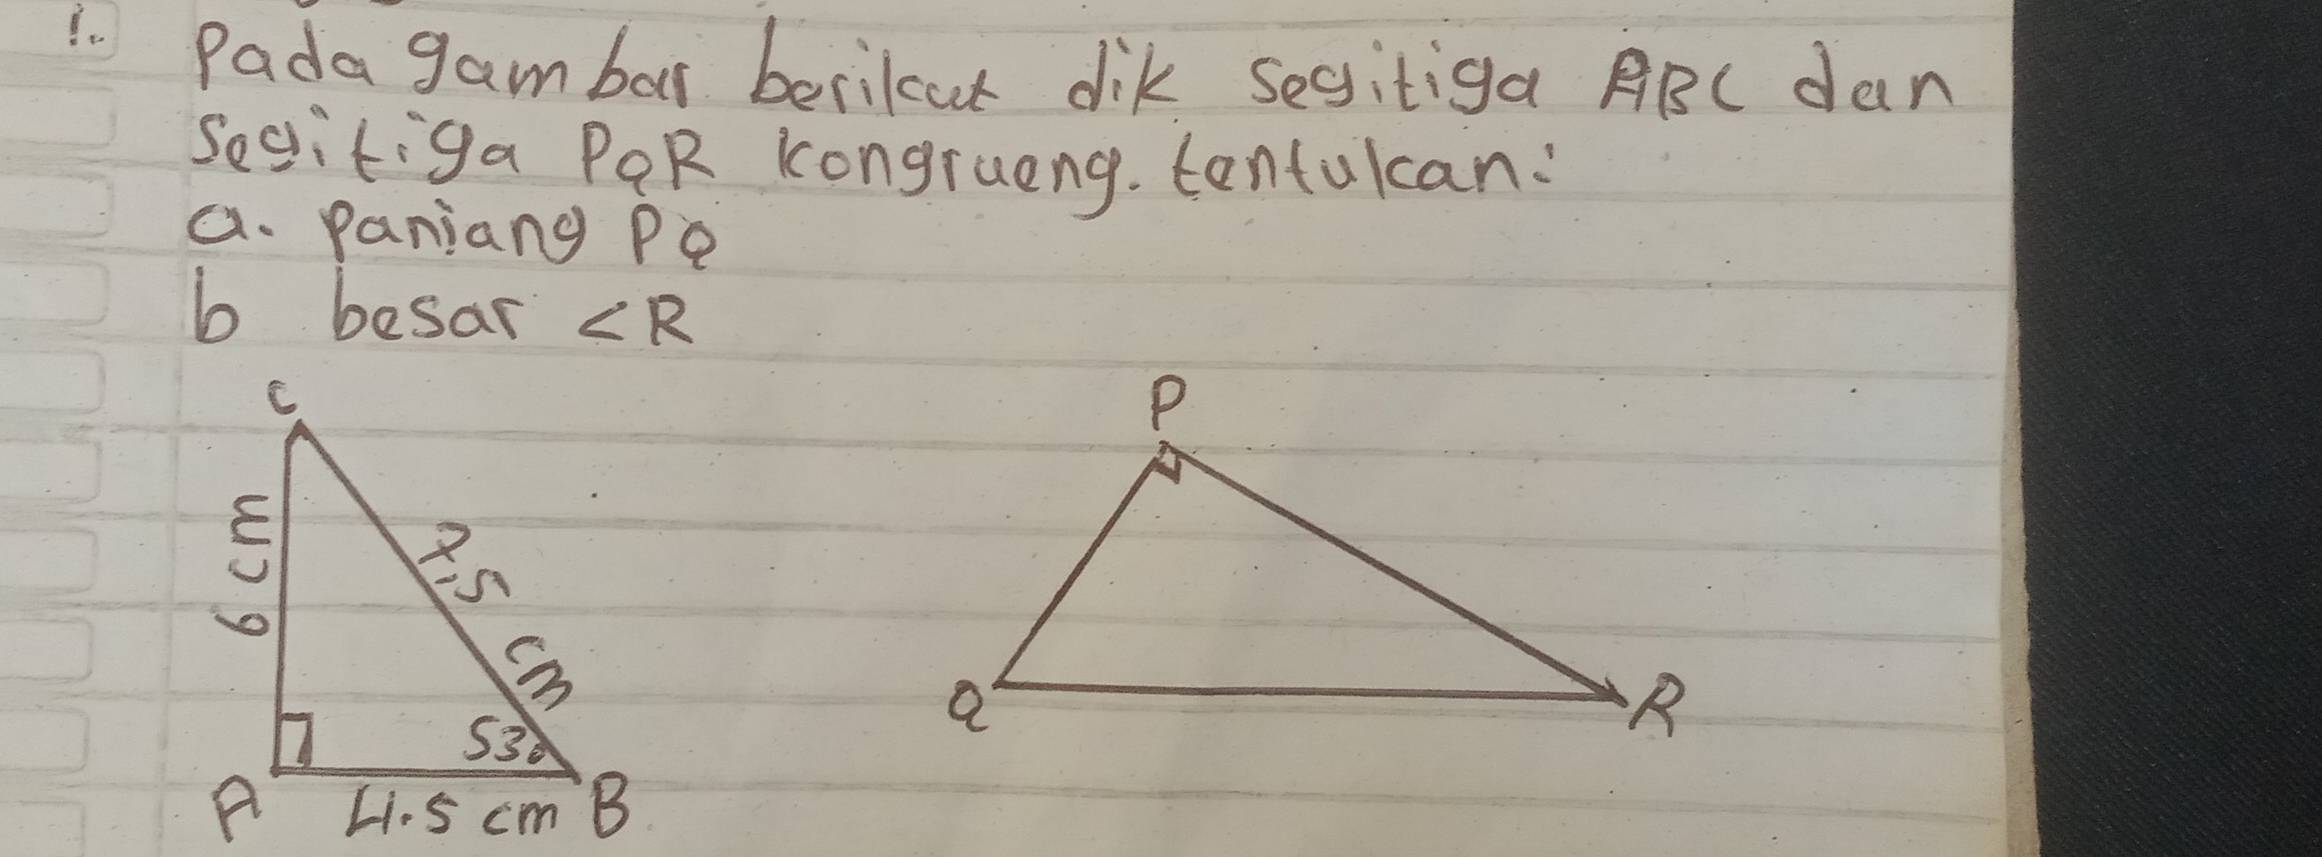 1. Pada gambar berikut dik segitiga ABC dan
segitiga PQR kongrueng. tentukan:
a. Panjang PQ
b besar <R
C
P
6 cm
7,5 cm
Q
R
53°
A
4.5 cm
B